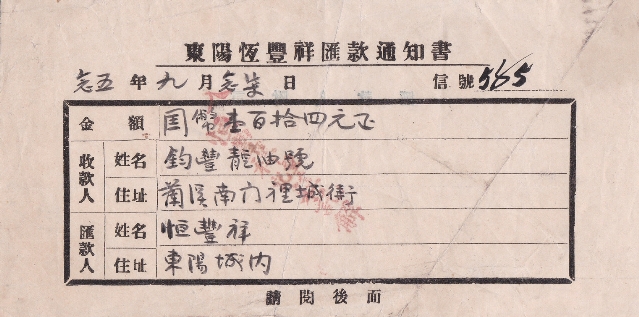 東陽恆豐祥匯款通知書
五年九月 日 信號565
金額 国幣壹百拾四元正
收款人 姓名 鈞豐 油號
住址 蘭溪南门裡城街
匯款人 姓名 恒豐祥
住址 東陽城内
請閱後面